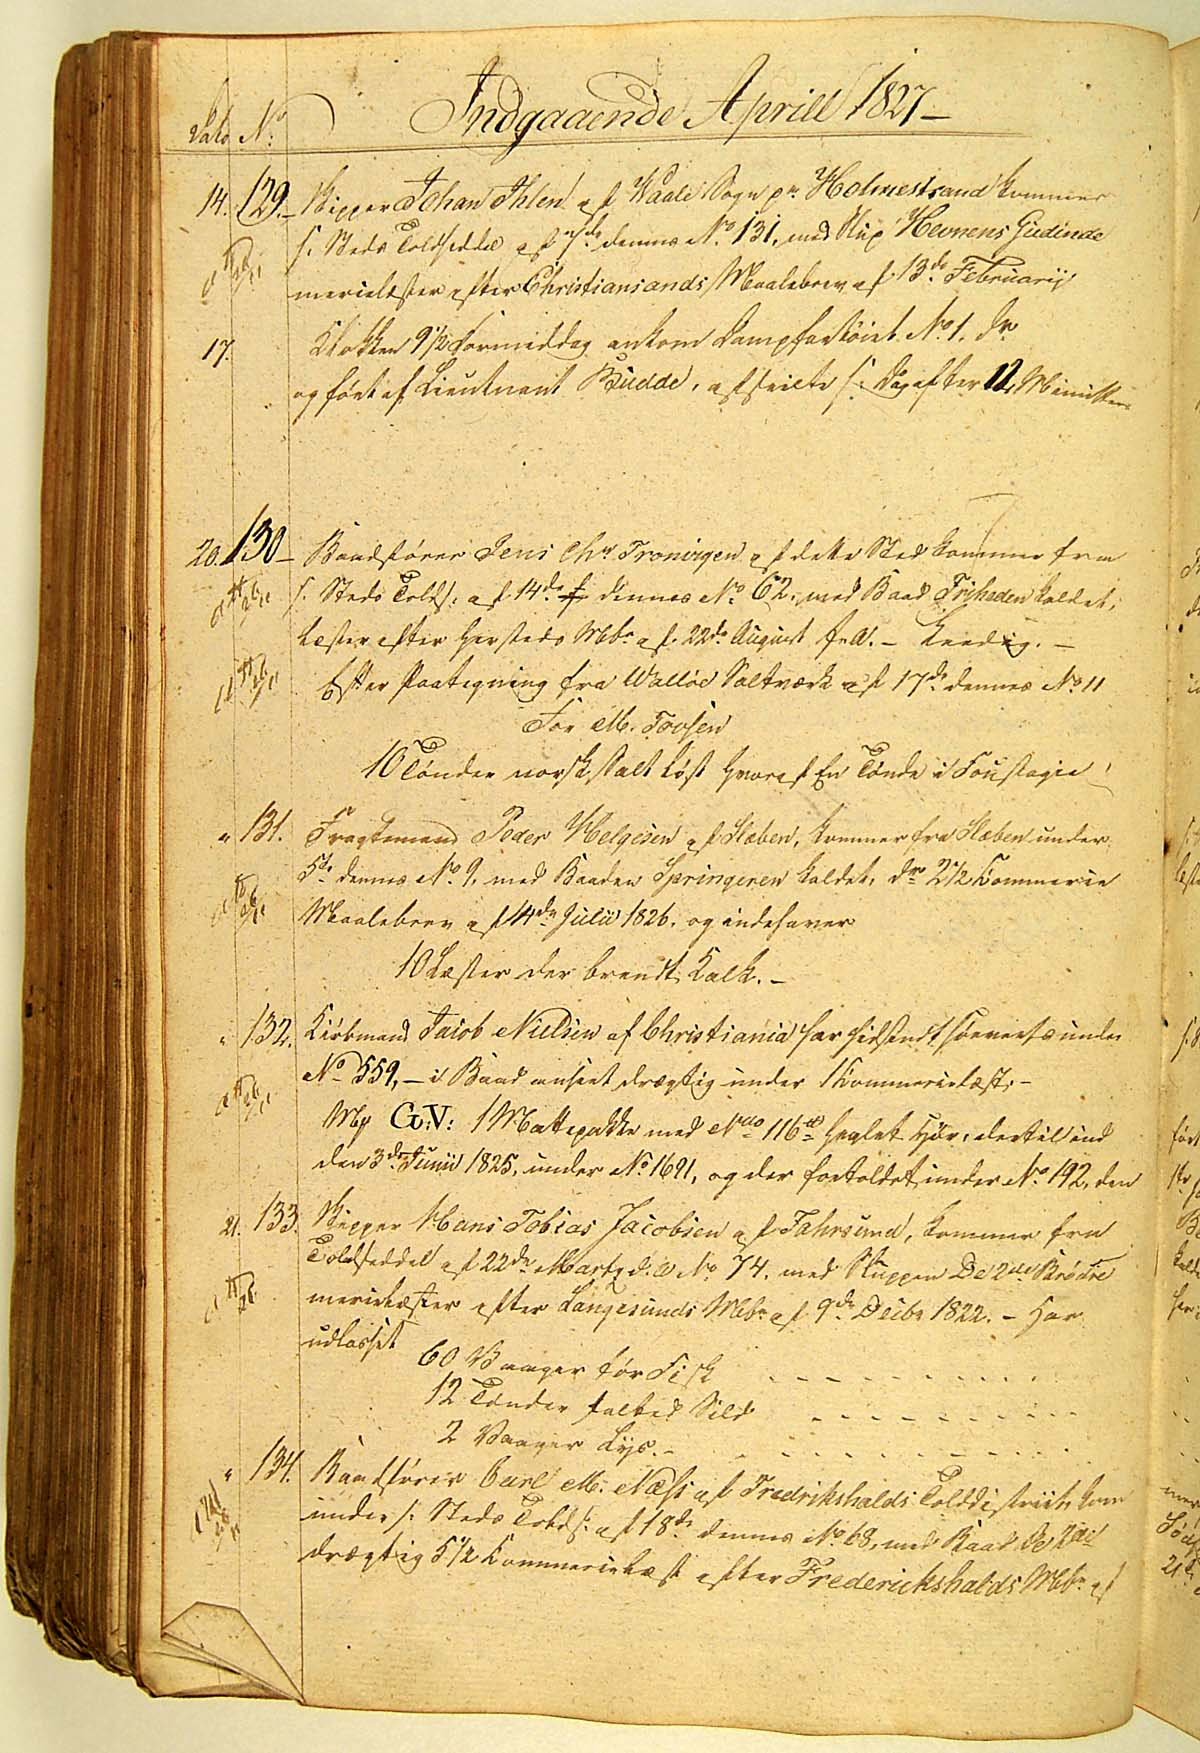 Indgaaende Aprill 1827 –
Dato No:
14. 129. – Skipper Johan Ihlen af Waale Sogn pr Holmestrand kommer
s: Steds Toldseddel af 7de dennes No 131, med Slup Hevnens Gudinde
merielæster efter Christiansands Maalebrev af 13de Februarij
17. Klokken 9 1/2 Formiddag ankom Dampfartöiet No 1.
og fört af Lieutnant Budde, afseilte s: Dag efter 12 Minutter
20. 130 – Baadförer Jens Chr Troningen af dette Sted kommer fra
s: Steds Tolds: af 14de dennes No 62, med Baad Friheden kaldet,
Læster efter Hersteds Mbr af 22de August f. A. – Leedig. –
Efter Paategning fra Walløe Saltværk af 17de dennes No 11
For M. Foyen
10 Tönder norsk Salt löst hvoraf En Tönde i Foustagie
" 131. Fragtemand Peder Helgesen af Steben, kommer fra Steben under
5te dennes No 9, med Baaden Springeren kaldet, 2 1/2 Kommercie
Maalebrev af 14de Julii 1826. og indehaver
10 Læster der brendt Kalk. –
" 132. Kiöbmand Jacob Nielsen af Christiania har hidsendt under
No 559, – i Baad anseet drægtig under 1 Kommercielæst, –
Mp G:V: 1 Mattepakke med Nto 116 tt Heglet Hör, dertil ind
den 3de Junii 1825, under No 1691, og der fortoldet under No 192, den
21. 133. Skipper Hans Tobias Jacobsen af Fahrsund, kommer fra
Toldseddel af 22de Marty d. A. No 74. med Sluppen De 2de Brödre
merielæster efter Langesunds Mbr af 9de Decbr 1822. – Har
udlosset
60 Vaager tör Fisk
12 Tönder saltet Sild
2 Vaager Lys. –
" 134. Baadförer Carl M: Næss af Fredrikshalds Tolddistrict, kom
under s: Steds Tolds: af 18de dennes No 68, med Baad De 2de
drægtig 5 1/2 Kommercielæst efter Frederickshalds Mbr af